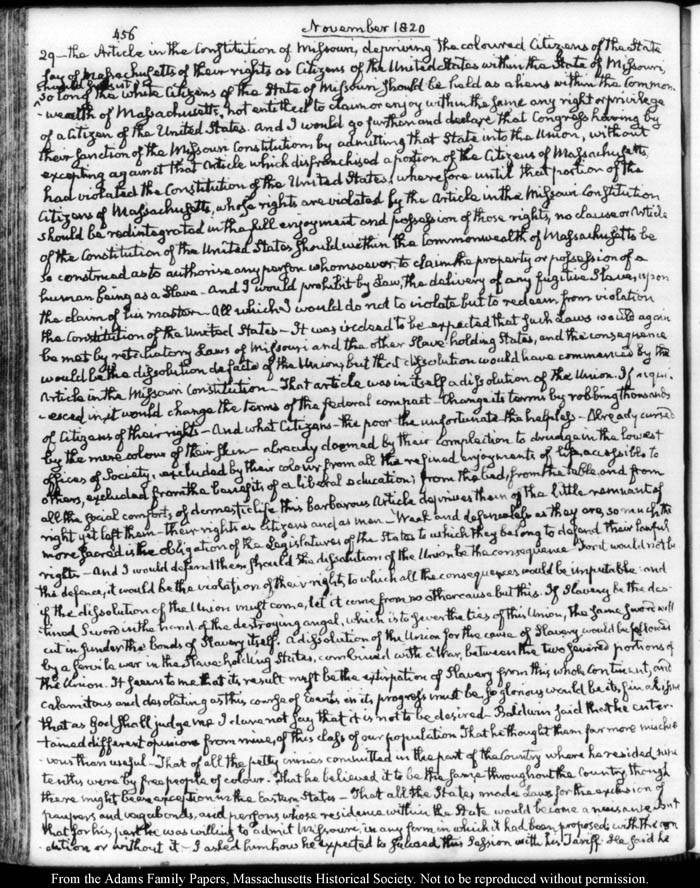 456
November 1820
29 — the Article in the Constitution of Missouri, depriving the coloured Citizens of the State
say of Massachusetts of their rights as Citizens of the United States within the State of Missouri,
so long the white Citizens of the State of Missouri should be held as aliens within the Common-
wealth of Massachusetts, not entitled to claim or enjoy within the same any right or privilege
of a Citizen of the United States. And I would go further and declare that Congress having by
their sanction of the Missouri Constitution, by admitting that State into the Union, without
excepting against that Article which disfranchised a portion of the Citizens of Massachusetts,
had violated the Constitution of the United States; wherefore until that portion of the
Citizens of Massachusetts, whose rights are violated by the Article in the Missouri Constitution
should be redintegrated in the full enjoyment and possession of those rights, no clause or Article
of the Constitution of the United States should within the Commonwealth of Massachusetts be
so construed as to authorise any person whomsoever to claim the property or possession of a
human being as a Slave — And I would prohibit by Law, the delivery of any fugitive Slave, upon
the claim of his master. All which I would do not to violate but to redeem from violation
the Constitution of the United States — It was indeed to be expected that such Laws would again
be met by retaliatory Laws of Missouri and the other Slave holding States, and the consequence
would be the dissolution de facto of the Union; but that dissolution would have commenced by the
Article in the Missouri Constitution — That article was in itself a dissolution of the Union. If acqui-
esced in, it would change the terms of the federal compact — change its terms by robbing thousands
of Citizens of their rights — And what Citizens — the poor the unfortunate the helpless — Already cursed
by the mere colour of their skin — already doomed by their complection to drudge in the lowest
offices of Society, excluded by their colour from all the refined enjoyments of life, accessible to
others, excluded from the benefits of a liberal education; from the bed, from the table, and from
all the social comforts of domestic life this barbarous Article deprives them of the little remnant of
right yet left them — their rights as Citizens and as men — Weak and defenceless as they are, so much the
more sacred is the obligation of the Legislatures of the States to which they belong to defend their lawful
rights — And I would defend them should the dissolution of the Union be the consequence. For it would not be
the defence, it would be the violation of their rights, to which all the consequences would be imputable: and
if the dissolution of the Union must come, let it come from no other cause but this. If Slavery be the des-
tined Sword in the hand of the destroying angel, which is to sever the ties of this Union, the same sword will
cut in sunder the bonds of Slavery itself. A dissolution of the Union for the cause of Slavery would be followed
by a servile war in the Slave-holding States, combined with a War, between the two severed portions of
the Union. It seems to me that its result must be the extirpation of Slavery from this whole Continent, and
calamitous and desolating as this course of Events in its progress must be, so glorious would be its final issue
that as God shall judge me I dare not say that it is not to be desired — Baldwin said that he enter-
tained different opinions from mine, of this class of our population. That he thought them far more mischie-
vous than useful — That of all the petty crimes committed in the part of the Country where he resided nine
tenths were by free people of colour. That he believed it to be the same throughout the Country though
there might be an exception in the Eastern States — That all the States made Laws for the exclusion of
paupers and vagabonds, and persons whose residence within the State would become a nuisance. But
that for his part he was willing to admit Missouri, in any form in which it had been proposed with the con-
dition or without it — I asked him how he expected to succeed this Session with his Tariff. He said he
From the Adams Family Papers, Massachusetts Historical Society. Not to be reproduced without permission.